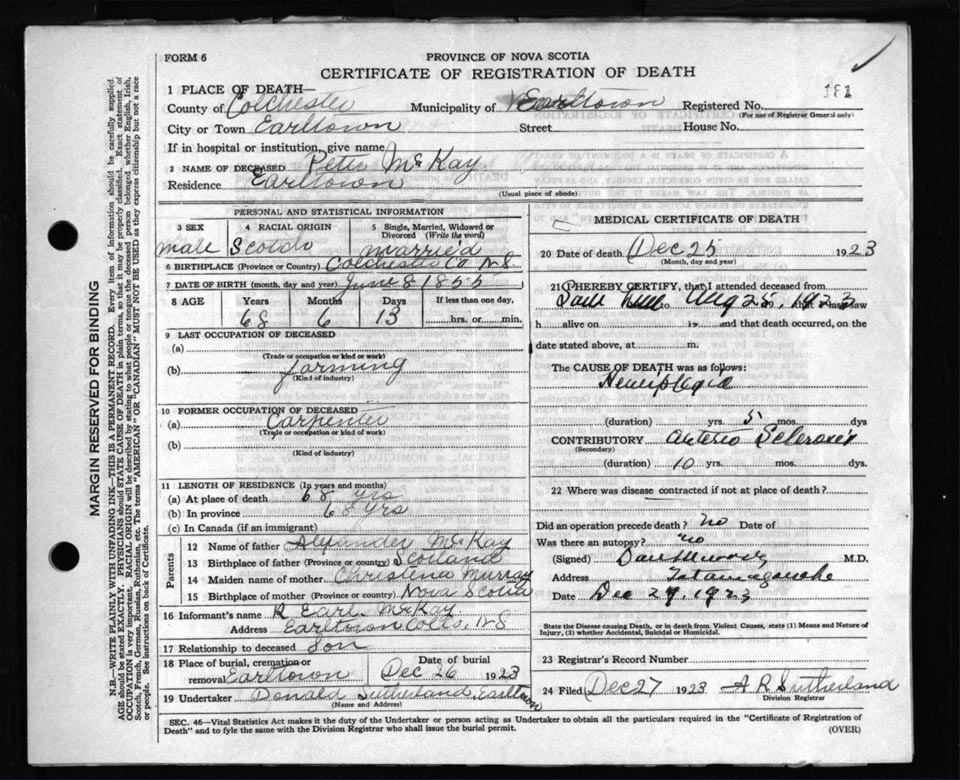 FORM 6
PROVINCE OF NOVA SCOTIA
CERTIFICATE OF REGISTRATION OF DEATH
181
1 PLACE OF DEATH—
County of Colchester Municipality of Earltown Registered No.
(For use of Registrar General only)
City or Town Earltown Street House No.
If in hospital or institution, give name
2 NAME OF DECEASED Peter McKay
Residence Earltown
(Usual place of abode)
PERSONAL AND STATISTICAL INFORMATION
3 SEX 4 RACIAL ORIGIN 5 Single, Married, Widowed or Divorced (Write the word)
Male Scotch Married
6 BIRTHPLACE (Province or Country) Colchester Co NS
7 DATE OF BIRTH (month, day and year) June 8 1855
8 AGE Years Months Days If less than one day,
68 6 13 hrs. or min.
9 LAST OCCUPATION OF DECEASED
(a)
(Trade or occupation or kind of work)
(b) farming
(Kind of industry)
10 FORMER OCCUPATION OF DECEASED
(a) Carpenter
(Trade or occupation or kind of work)
(b)
(Kind of industry)
11 LENGTH OF RESIDENCE (In years and months)
(a) At place of death 68 yrs
(b) In province 68 yrs
(c) In Canada (if an immigrant)
Parents
12 Name of father Alexander McKay
13 Birthplace of father (Province or country) Scotland
14 Maiden name of mother Christena Murray
15 Birthplace of mother (Province or country) Nova Scotia
16 Informant's name R Earl McKay
Address Earltown Colts, NS
17 Relationship to deceased Son
18 Place of burial, cremation or removal Earltown
Date of burial Dec 26 1923
19 Undertaker Donald Sutherland Earltown
(Name and Address)
MEDICAL CERTIFICATE OF DEATH
20 Date of death Dec 25 1923
(Month, day and year)
21 I HEREBY CERTIFY, that I attended deceased from
to Aug 25, 1923 saw
h alive on 19 and that death occurred, on
date stated above, at m.
The CAUSE OF DEATH was as follows:
Hemiplegia
(duration) yrs. 5 mos. dys.
CONTRIBUTORY Arterio Sclerosis
(Secondary)
(duration) 10 yrs. mos. dys.
22 Where was disease contracted if not at place of death?
Did an operation precede death? no Date of
Was there an autopsy? no
(Signed) M.D.
Address Tatamagouche
Date Dec 27, 1923
State the Disease causing Death, or in death from Violent Causes, state (1) Means and Nature of Injury, (2) whether Accidental, Suicidal or Homicidal.
23 Registrar's Record Number
24 Filed Dec 27 1923 A R Sutherland
Division Registrar
SEC. 46—Vital Statistics Act makes it the duty of the Undertaker or person acting as Undertaker to obtain all the particulars required in the "Certificate of Registration of
Death" and to fyle the same with the Division Registrar who shall issue the burial permit.
(OVER)
MARGIN RESERVED FOR BINDING
N.B.—WRITE PLAINLY WITH UNFADING INK—THIS IS A PERMANENT RECORD. Every item of information should be carefully supplied.
AGE should be stated EXACTLY. PHYSICIANS should STATE CAUSE OF DEATH in plain terms, so that it may be properly classified. Exact statement of
OCCUPATION is very important. RACIAL ORIGIN will be described by stating to what people or tongue the deceased person belonged whether English, Irish,
Scotch, French, German, Russian, Ruthenian, etc. The terms "AMERICAN" OR "CANADIAN" MUST NOT BE USED as they express citizenship but not a race
or people. See instructions on back of Certificate.